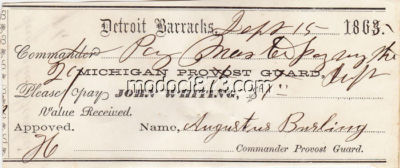 Detroit Barracks, Sept 15 1863.
Commander Pay Mas
MICHIGAN PROVOST GUARD, Sept
Please pay JOHN WHITING, $1
Value Received.
Appoved. Name, Augustus Burling
Commander Provost Guard.